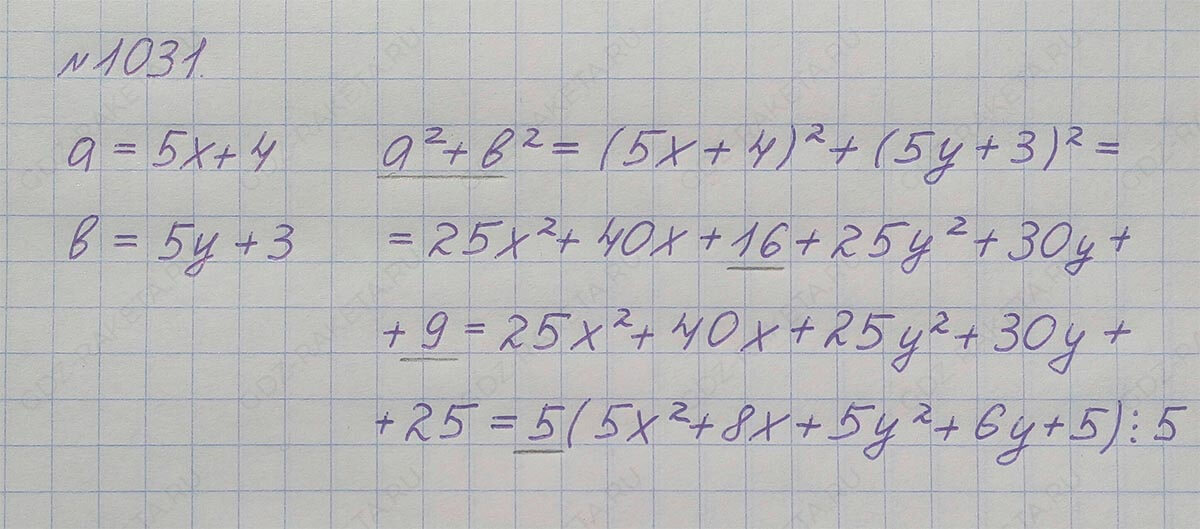 №1031.
a = 5x + 4
b = 5y + 3
a² + b² = (5x + 4)² + (5y + 3)² =
= 25x² + 40x + 16 + 25y² + 30y +
+ 9 = 25x² + 40x + 25y² + 30y +
+ 25 = 5(5x² + 8x + 5y² + 6y + 5) : 5
GDZ-RAKETA.RU